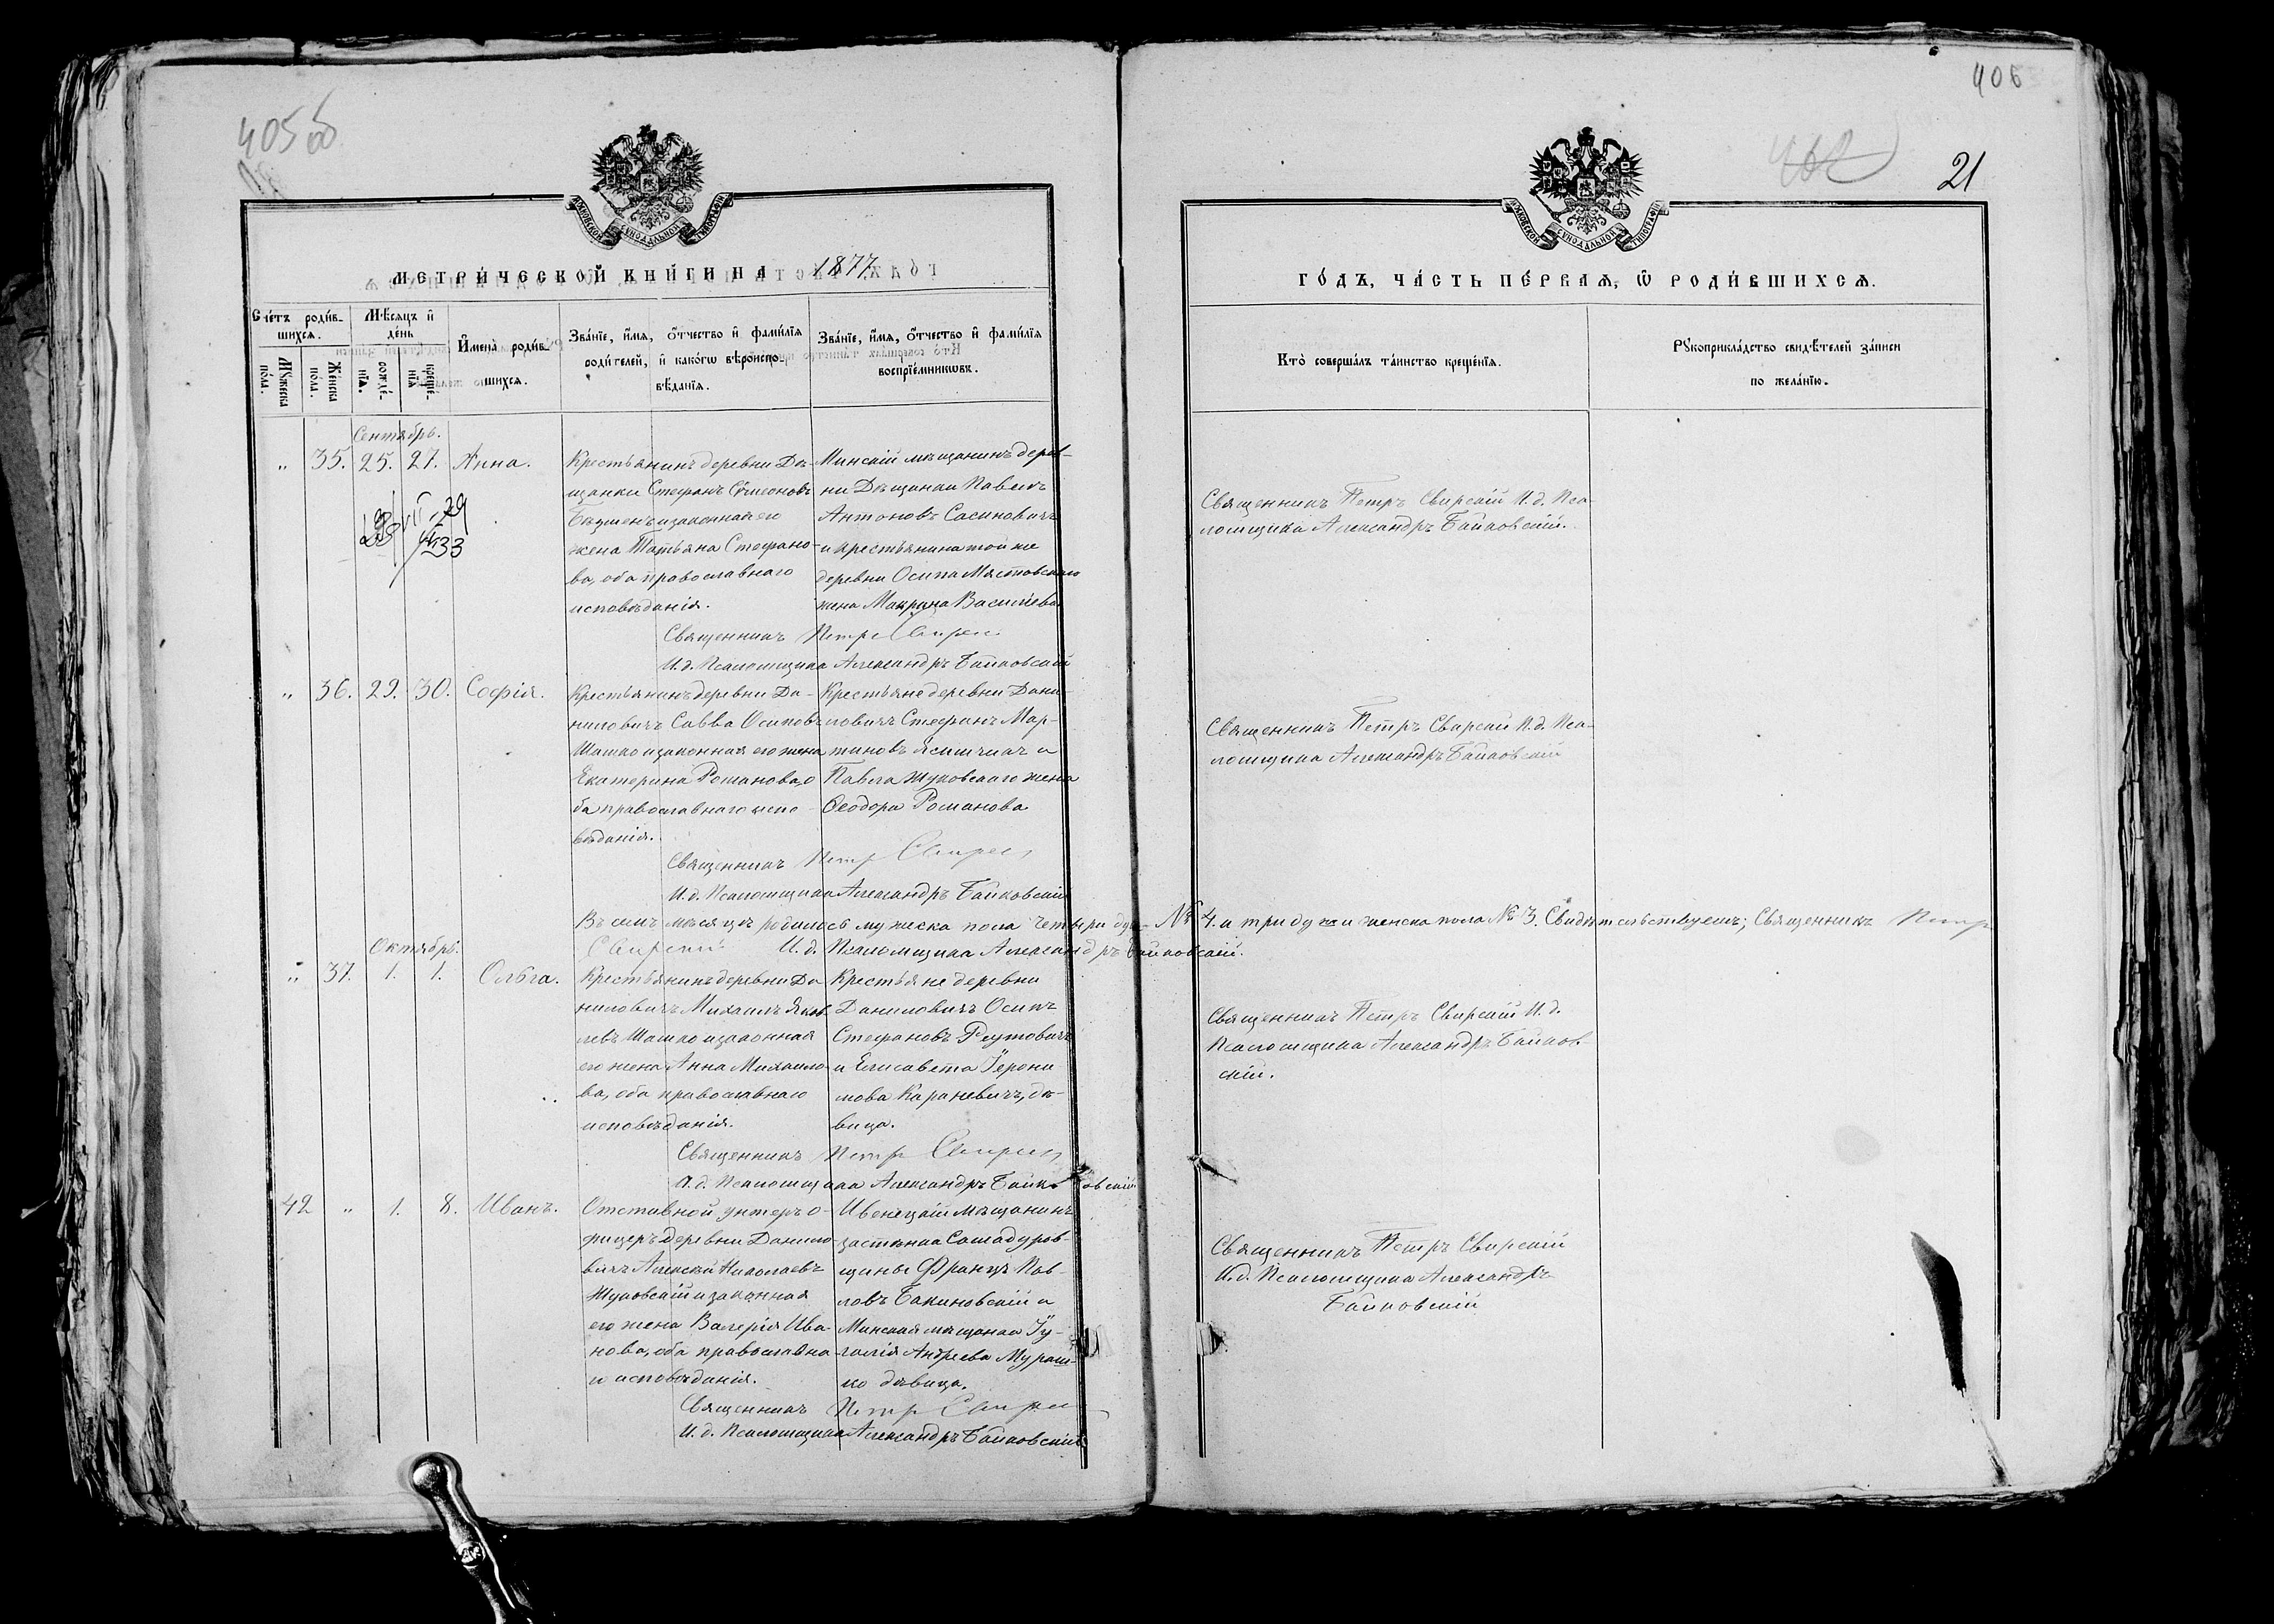 405 об
406
21
МЕТРИ́ЧЕСКОЙ КНИ́ГИ НА 1877
ГО́ДЪ, ЧА́СТЬ ПЕ́РВАѦ, Ѡ҆ РОДИ́ВШИХСѦ.
Сче́тъ роди́вшихсѧ.
Мꙋ́жеска по́ла.
Же́нска по́ла.
Мѣ́сяцъ и҆ де́нь
рожде́нїѧ.
креще́нїѧ
И҆мена̀ роди́вшихсѧ.
Зва́нїе, и҆́мѧ, ѻ҆́тчество и҆ фами́лїѧ роди́телей, и҆ како́гѡ вѣроисповѣ́данїѧ.
Зва́нїе, и҆́мѧ, ѻ҆́тчество и҆ фами́лїѧ воспрїе́мникѡвъ.
Кто̀ соверша́лъ та́инство креще́нїѧ.
Рꙋкоприкла́дство свидѣ́телей за́писи по жела́нїю.
Сентябрь.
" 35. 25. 27. Анна.
Крестьянинъ деревни Дѣ-
щанки Стефанъ Симеоновъ
изаконная его
жена Татьяна Стефано-
ва, оба православнаго
исповѣданія.
Минскій мѣщанинъ дерев-
ни Дѣщанки Павелъ
Антоновъ Сасиновичъ
и крестьянина той же
деревни Осипа Мястовскаго
жена Макрина Васильева
Священникъ Петръ Свирскій И.д. Пса-
ломщика Александръ Байковскій.
Священникъ Петръ Свирскій
И.д. Псаломщика Александръ Байковскій
" 36. 29. 30. Софія.
Крестьянинъ деревни Да-
ниловичъ Савва Осиповъ
Шашко изаконная его жена
Екатерина Романова, о
ба православнаго испо-
вѣданія.
Крестьяне деревни Дани-
ловичъ Стефанъ Мар-
тиновъ и
Павла Жуковскаго жена
Ѳеодора Романова
Священникъ Петръ Свирскій И.д. Пса-
ломщика Александръ Байковскій
Священникъ Петръ Свирскій
И.д. Псаломщика Александръ Байковскій
Въ семъ мѣсяцѣ родилось мужеска пола четыри души № 4. и три души женска пола № 3. Свидѣтельствуемъ; Священникъ Петръ
Свирскій И.д. Псаломщика Александръ Байковскій.
Октябрь.
" 37. 1. 1. Ольга.
Крестьянинъ деревни Да
ниловичъ Михаилъ Яков
левъ Шашко изаконная
его жена Анна Михаило-
ва, оба православнаго
исповѣданія.
Крестьяне деревни
Даниловичъ Осипъ
Стефановъ Реутовичъ
и Елисавета Іерони
мова Караневичъ, дѣ-
вица.
Священникъ Петръ Свирскій И.д.
Псаломщика Александръ Байков-
скій.
Священникъ Петръ Свирскій
И.д. Псаломщика Александръ Байковскій
42 " 1. 8. Иванъ.
Отставной унтеръ о-
фицеръ деревни Данило-
вичъ Алексѣй Николаевъ
Жуковскій изаконная
его жена Валерія Ива-
нова, оба православна-
го исповѣданія.
Ивенецкій мѣщанинъ
застѣнка Сашадуров-
щины Францъ Пав-
ловъ Бакиновскій и
Минская мѣщанка Іу-
лалія Андреева Мураш-
ко дѣвица.
Священникъ Петръ Свирскій
И.д. Псаломщика Александръ
Байковскій
Священникъ Петръ Свирскій
И.д. Псаломщика Александръ Байковскій